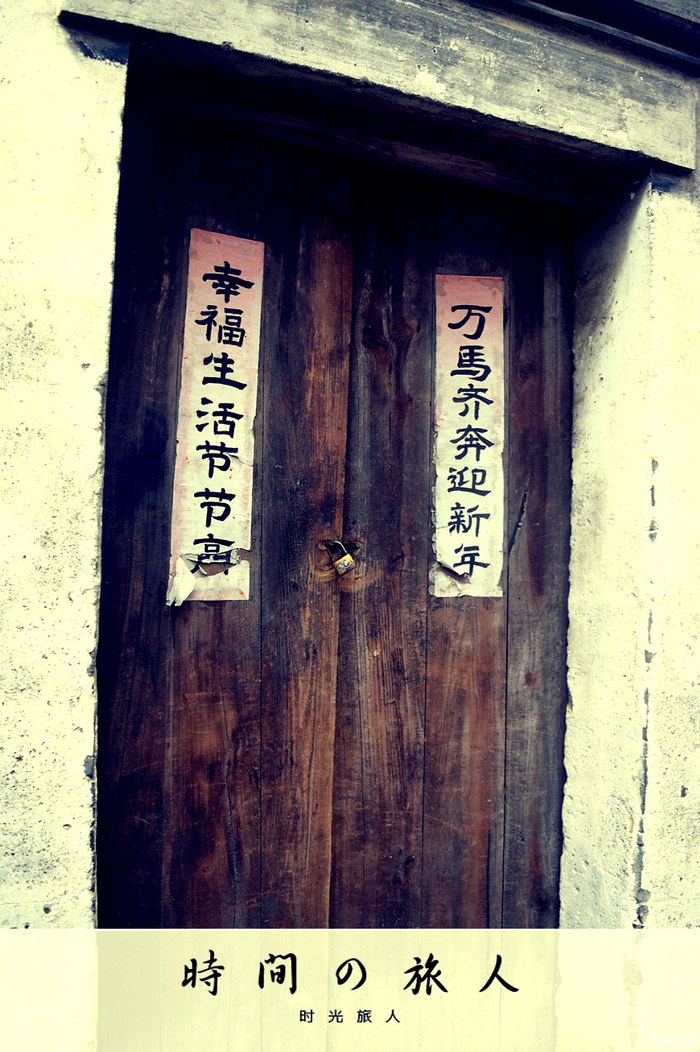 万馬齐奔迎新年
幸福生活节节高
時間の旅人
时光旅人